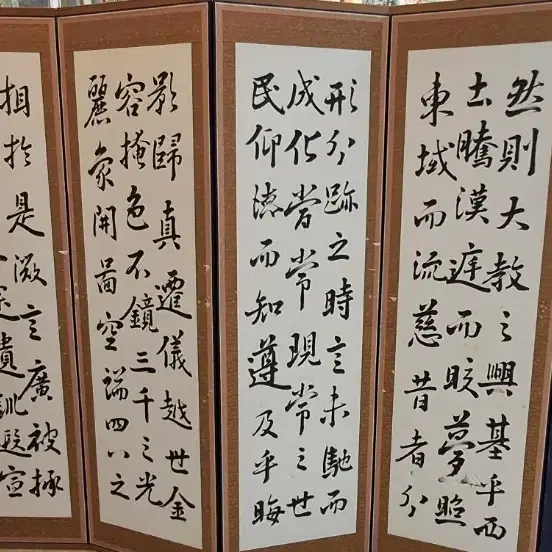 然則大教之興基乎西
土騰漢庭而皎夢照
東域而流慈昔者分
形分跡之時言未馳而
成化當常現常之世
民仰德而知遵及乎晦
影歸真遷儀越世金
容掩色不鏡三千之光
麗象開圖空端四八之
相於是微言廣被拯
遺訓遐宣